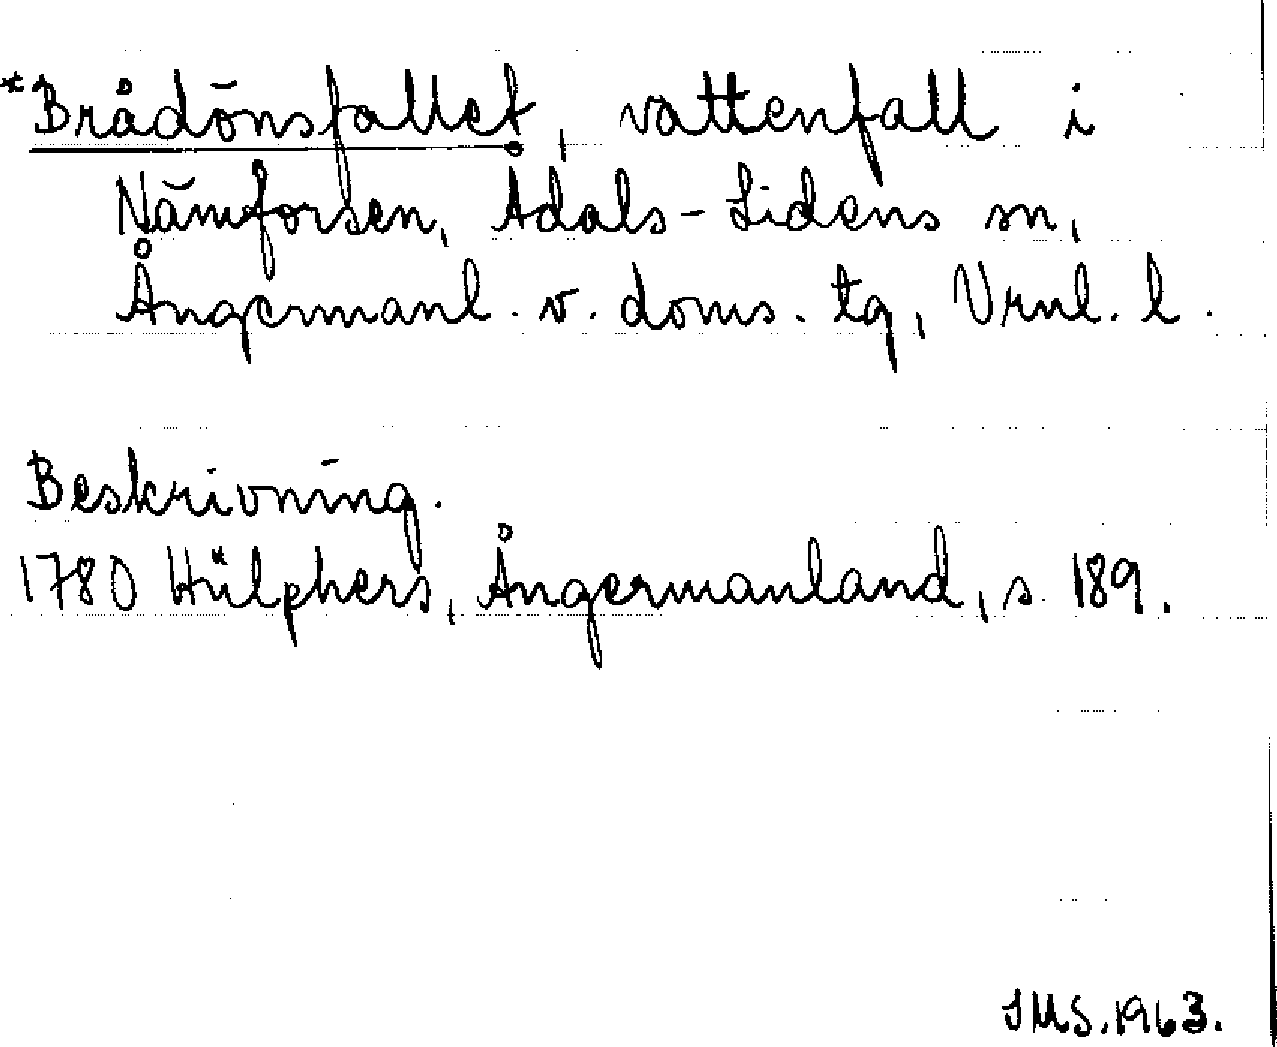 *Brådönsfallet, vattenfall i
Nämforsen, Ådals-Lidens sn,
Ångermanl. v. doms. tg, Vrnl. l.
Beskrivning.
1780 Hülphers, Ångermanland, s. 189.
IMS. 1963.